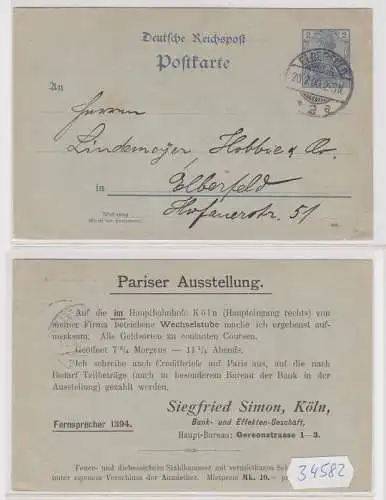 Deutsche Reichspost
Postkarte
2
An
Herren
Lindemeyer Hobbie & Co.
in Elberfeld
Hofauerstr. 51
Wohnung
Pariser Ausstellung.
Auf die im Hauptbahnhofe Köln (Haupteingang rechts) von
meiner Firma betriebene Wechselstube mache ich ergebenst auf-
merksam. Alle Geldsorten zu coulanten Coursen.
Geöffnet 7 ¾ Morgens — 11 ¼ Abends.
Ich schreibe auch Creditbriefe auf Paris aus, auf die nach
Bedarf Teilbeträge (auch in besonderem Bureau der Bank in der
Ausstellung) gezahlt werden.
Siegfried Simon, Köln,
Bank- und Effekten-Geschäft,
Fernsprecher 1394.
Haupt-Bureau: Gereonstrasse 1—3.
Feuer- und diebessichere Stahlkammer mit vermietbaren
unter eigenem Verschluss der Anmieter. Mietpreis Mk. 10.— pro
34582